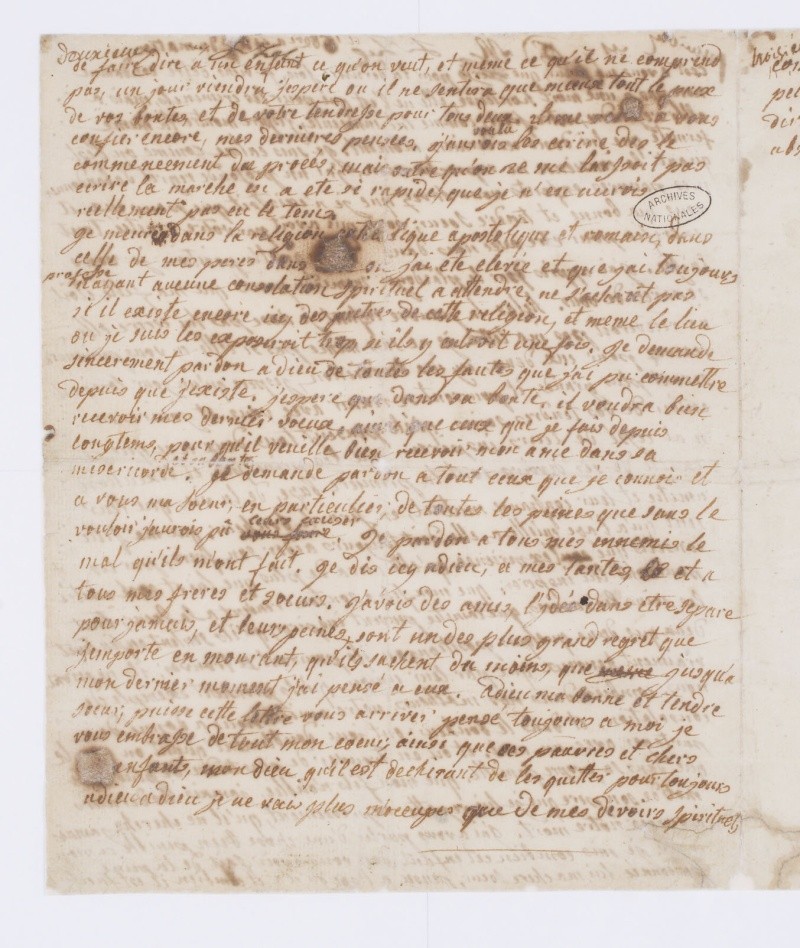 deuxieme
de faire dire a un enfant ce qu'on veut, et meme ce qu'il ne comprend
pas, un jour viendra j'espere ou il ne sentira que mieux tout le prix
de vos bontes et de votre tendresse pour tous deux. il me a vous
confier encore, mes dernieres pensées, j'aurois voulu les ecrire des le
commencement du procès, mais outre qu'on ne me laissoit pas
ecrire la marche en a ete si rapide, que je n'en aurois
reellement pas eu le tems.
je meurs dans la religion catholique apostolique et romaine, dans
celle de mes peres dans ou j'ai ete elevée et que j'ai toujours
professée
n'ayant aucune consolation spirituel a attendre, ne sachant pas
s'il existe encore icy des pretres de cette religion, et meme le lieu
ou je suis les exposeroit trop si ils y entroit une fois. je demande
sincerement pardon a dieu de toutes les fautes que j'ai pu commettre
depuis que j'existe. j'espere que dans sa bonté, il voudra bien
recevoir mes derniers voeux, ainsi que ceux que je fais depuis
longtems, pour qu'il veuille bien recevoir mon ame dans sa
misericorde. je demande pardon a tout ceux que je connois et
a vous ma soeur, en particulier, de toutes les peines que sans le
vouloir j'aurois pû leurs causer. je pardon a tous mes ennemis le
mal qu'ils m'ont fait. je dis icy adieu, a mes tantes et a
tous mes freres et soeurs. j'avois des amis, l'idée dans etre separe
pour jamais, et leurs peines, sont un des plus grand regret que
j'emporte en mourant, qu'ils sachent du moins, que jusqu'a
mon dernier moment j'ai pensé a eux. adieu ma bonne et tendre
soeur, puisse cette lettre vous arriver pensé toujours a moi je
vous embrasse de tout mon coeur, ainsi que ces pauvres et chers
enfants, mon dieu qu'il est dechirant de les quitter pour toujours
adieu adieu je ne vais plus m'occuper que de mes devoirs spirituels
ARCHIVES
NATIONALES